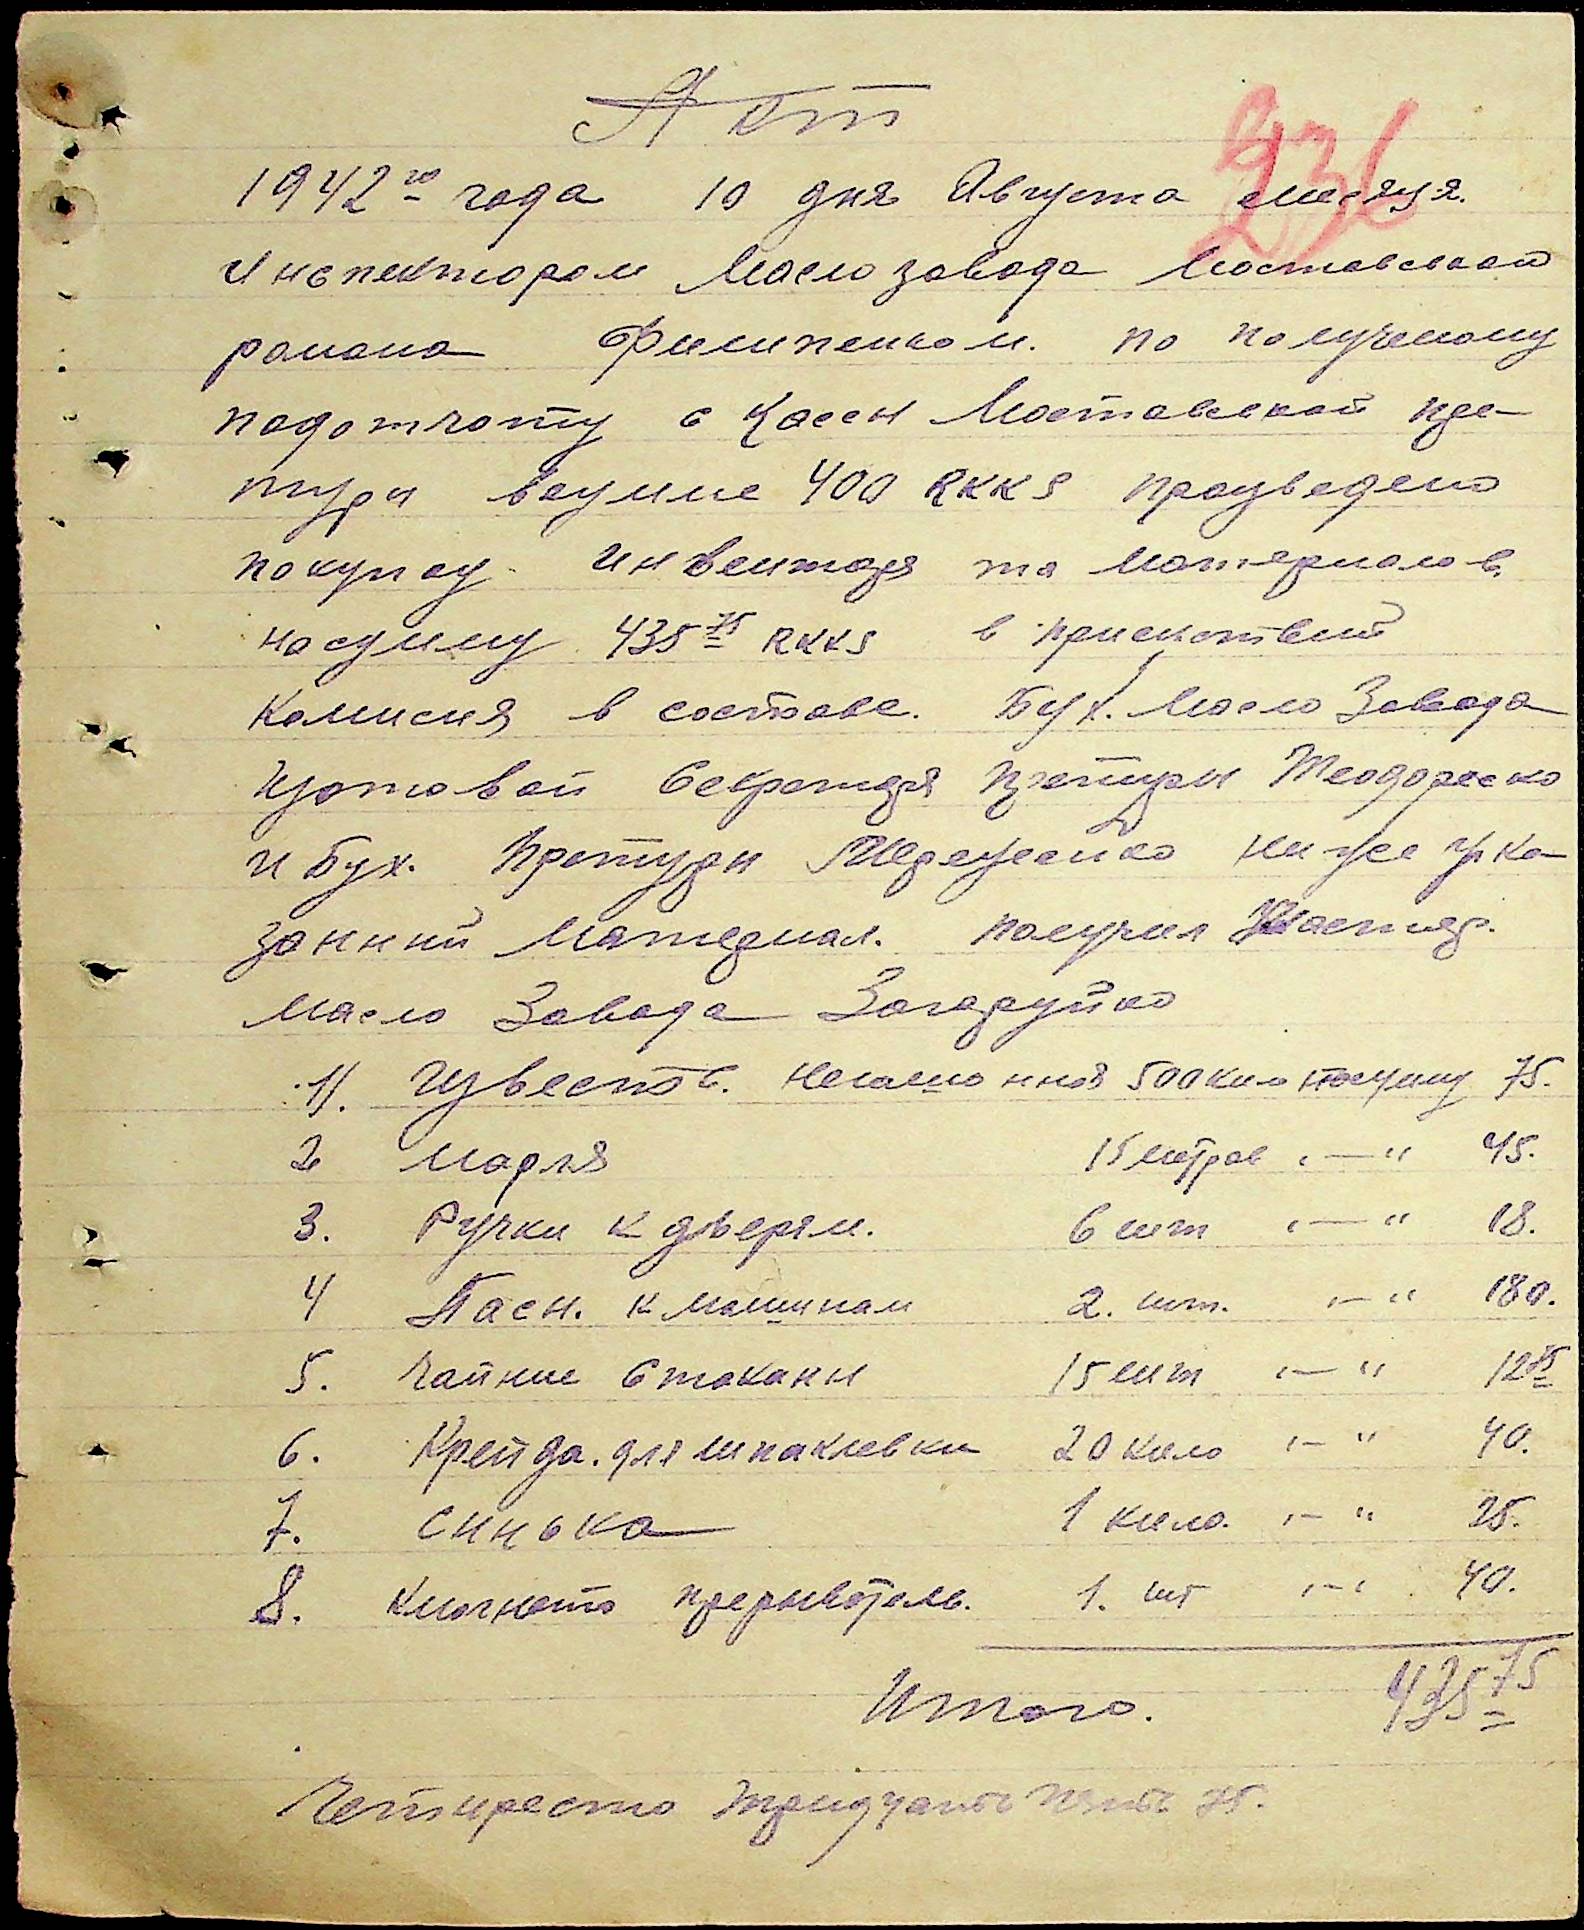 Акт
236
1942го года 10 дня Августа месяця.
Инспектором Маслозавода Мостовской
района Филипенком. по полученому
подотчоту с Кассы Мостовской пре-
туры всумме 400 RKKS произведено
покупку. Инвентаря та материалов.
насумму 435 75 RKKS в присутствий
Комисия в составе. Бух. Масло Завода
Секретаря Претуры Теодореско
и Бух. Претуры ниже ука-
занный материал. получил
Масло Завода Загаруйко
1). Известь. негашонная 500 кило насумму 75.
2 Марля 15 метров -"- 45.
3. Ручки к дверям. 6 шт -"- 18.
4 Пасы. к машинам 2. шт. -"- 180.
5. Чайные Стаканы 15 шт -"- 12 75
6. Крейда. для шпаклевки 20 кило -"- 40.
7. Синька 1 кило. -"- 25.
8. прерыватель. 1. шт -"- 40.
Итого. 435 75
Четиреста тридцать пять 75.